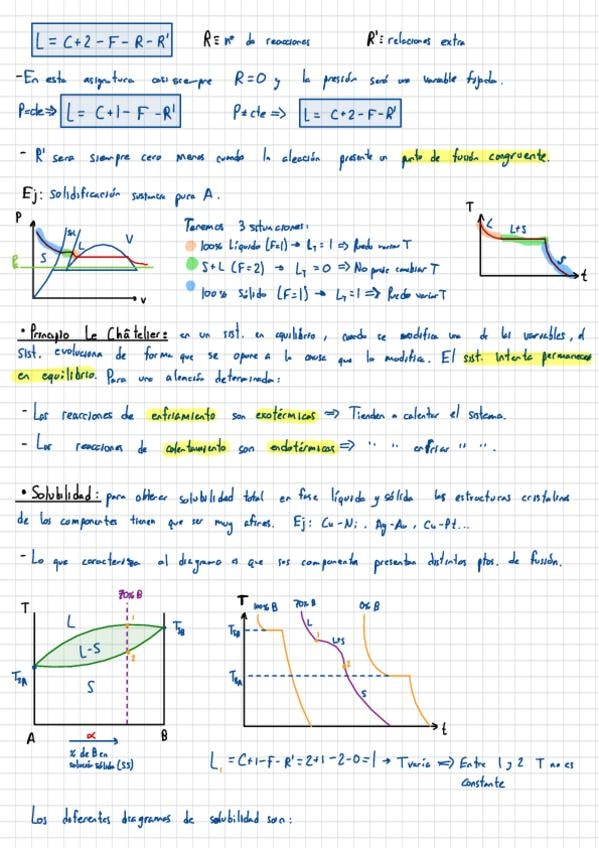 L = C+2-F-R-R'   R ≡ nº de reacciones   R' ≡ relaciones extra
- En esta asignatura casi siempre R=0 y la presión será una variable fijada.
P=cte ⇒ L = C+1-F-R'   P≠cte ⇒ L = C+2-F-R'
- R' sera siempre cero menos cuando la aleación presente un punto de fusión congruente.
Ej: Solidificación sustancia pura A.
P
SL
S
L
V
P.
v
Tenemos 3 situaciones:
100% Líquido (F=1) → L₁ = 1 ⇒ Puedo variar T
S+L (F=2) → L₁ = 0 ⇒ No puedo cambiar T
100% Sólido (F=1) → L₁ = 1 ⇒ Puedo variar T
T
L
L+S
S
t
• Principio Le Châtelier: en un sist. en equilibrio, cuando se modifica una de las variables, el
sist. evoluciona de forma que se opone a la causa que la modifica. El sist. intenta permanecer
en equilibrio. Para una aleación determinada:
- Las reacciones de enfriamiento son exotérmicas ⇒ Tienden a calentar el sistema.
- Las reacciones de calentamiento son endotérmicas ⇒ " " enfriar " ".
• Solubilidad: para obtener solubilidad total en fase líquida y sólida las estructuras cristalinas
de los componentes tienen que ser muy afines. Ej: Cu-Ni, Ag-Au, Cu-Pt...
- Lo que caracteriza al diagrama es que sus componentes presentan distintos ptos. de fusión.
T
70% B
L
1
TSB
L-S
2
TSA
S
A
α
B
% de B en
solución sólida (SS)
T
100% B
70% B
0% B
L
TSB
1
L+S
2
TSA
S
t
L₁ = C+1-F-R' = 2+1-2-0 = 1 → T varía ⇒ Entre 1 y 2 T no es
constante
Los diferentes diagramas de solubilidad son: